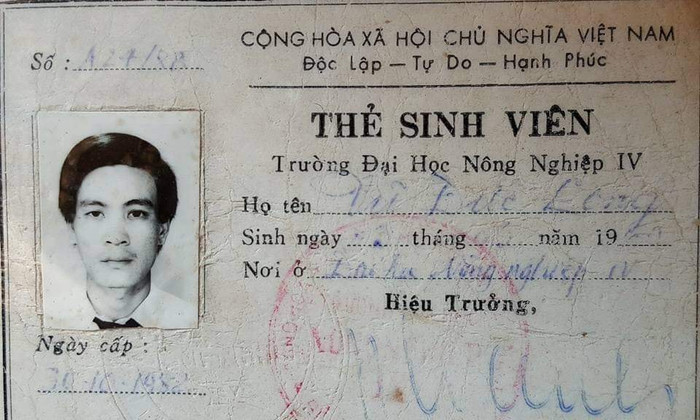 CỘNG HÒA XÃ HỘI CHỦ NGHĨA VIỆT NAM
Độc Lập — Tự Do — Hạnh Phúc
Số :
THẺ SINH VIÊN
Trường Đại Học Nông Nghiệp IV
Họ tên Vũ Đức Long
Sinh ngày tháng năm 19
Nơi ở Nông nghiệp IV
Hiệu Trưởng,
Ngày cấp :
30-10-1982